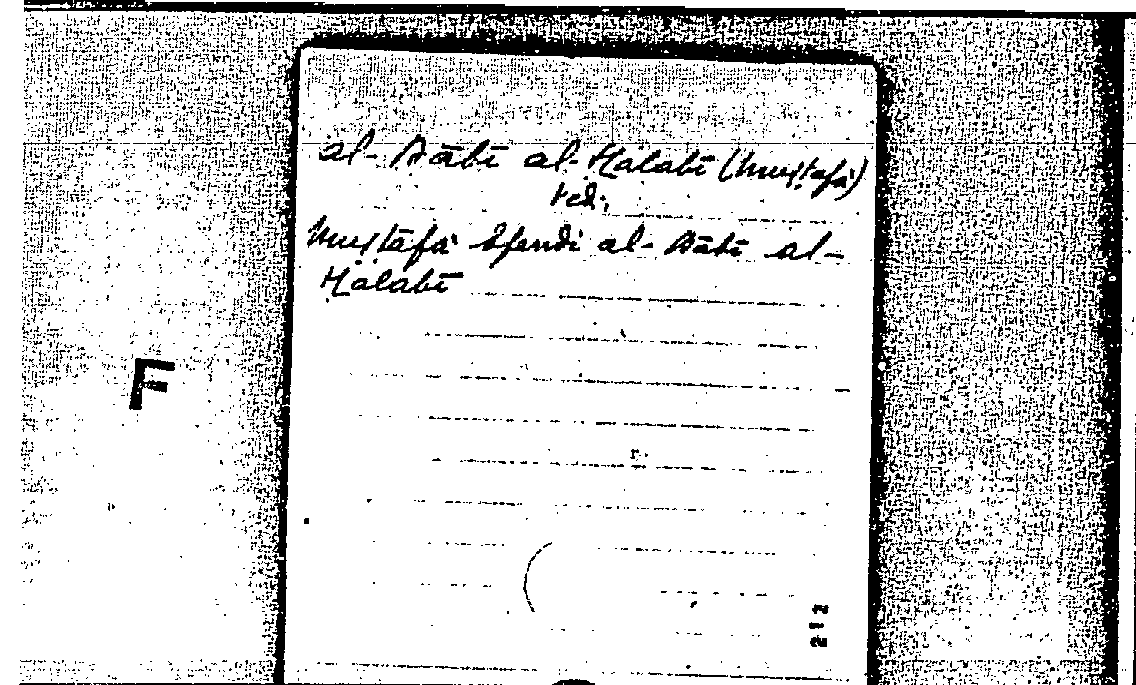 al-Bābī al-Ḥalabī (Muṣṭafà)
ved.
Muṣṭāfà Efendi al-Bābī al-
Ḥalabī
F